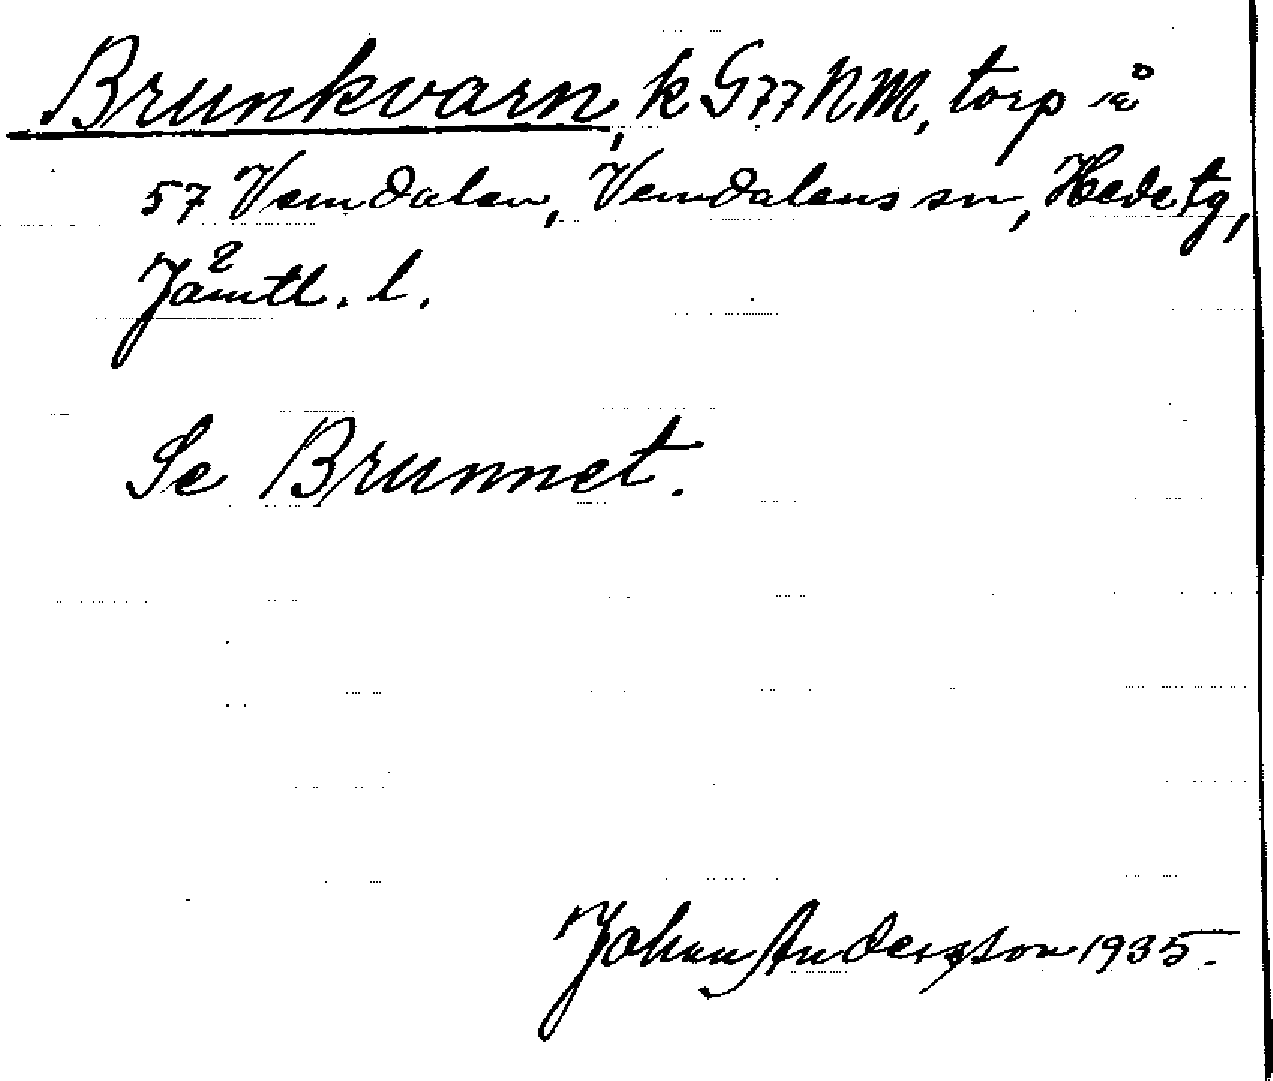 Brunkvarn, k G77NM, torp å
57 Vemdalen, Vemdalens sn, Hede tg,
Jämtl. l.
Se Brunnet.
Johan Andersson 1935.